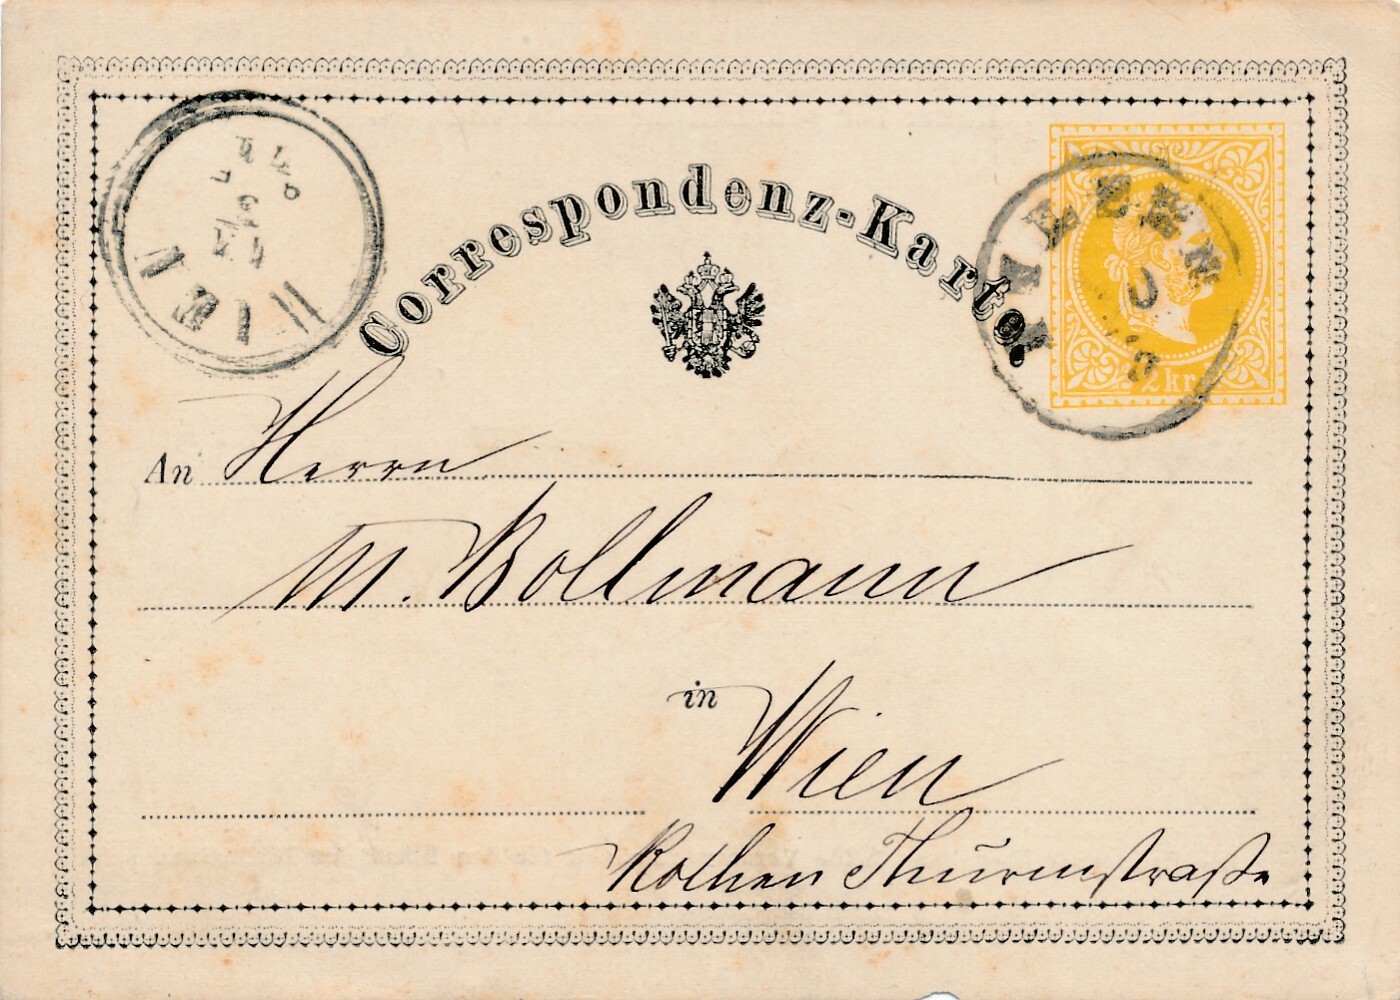 Correspondenz-Karte
2 kr
An Herrn
M. Bollmann
in Wien
Rothen Thurmstraße
WIEN